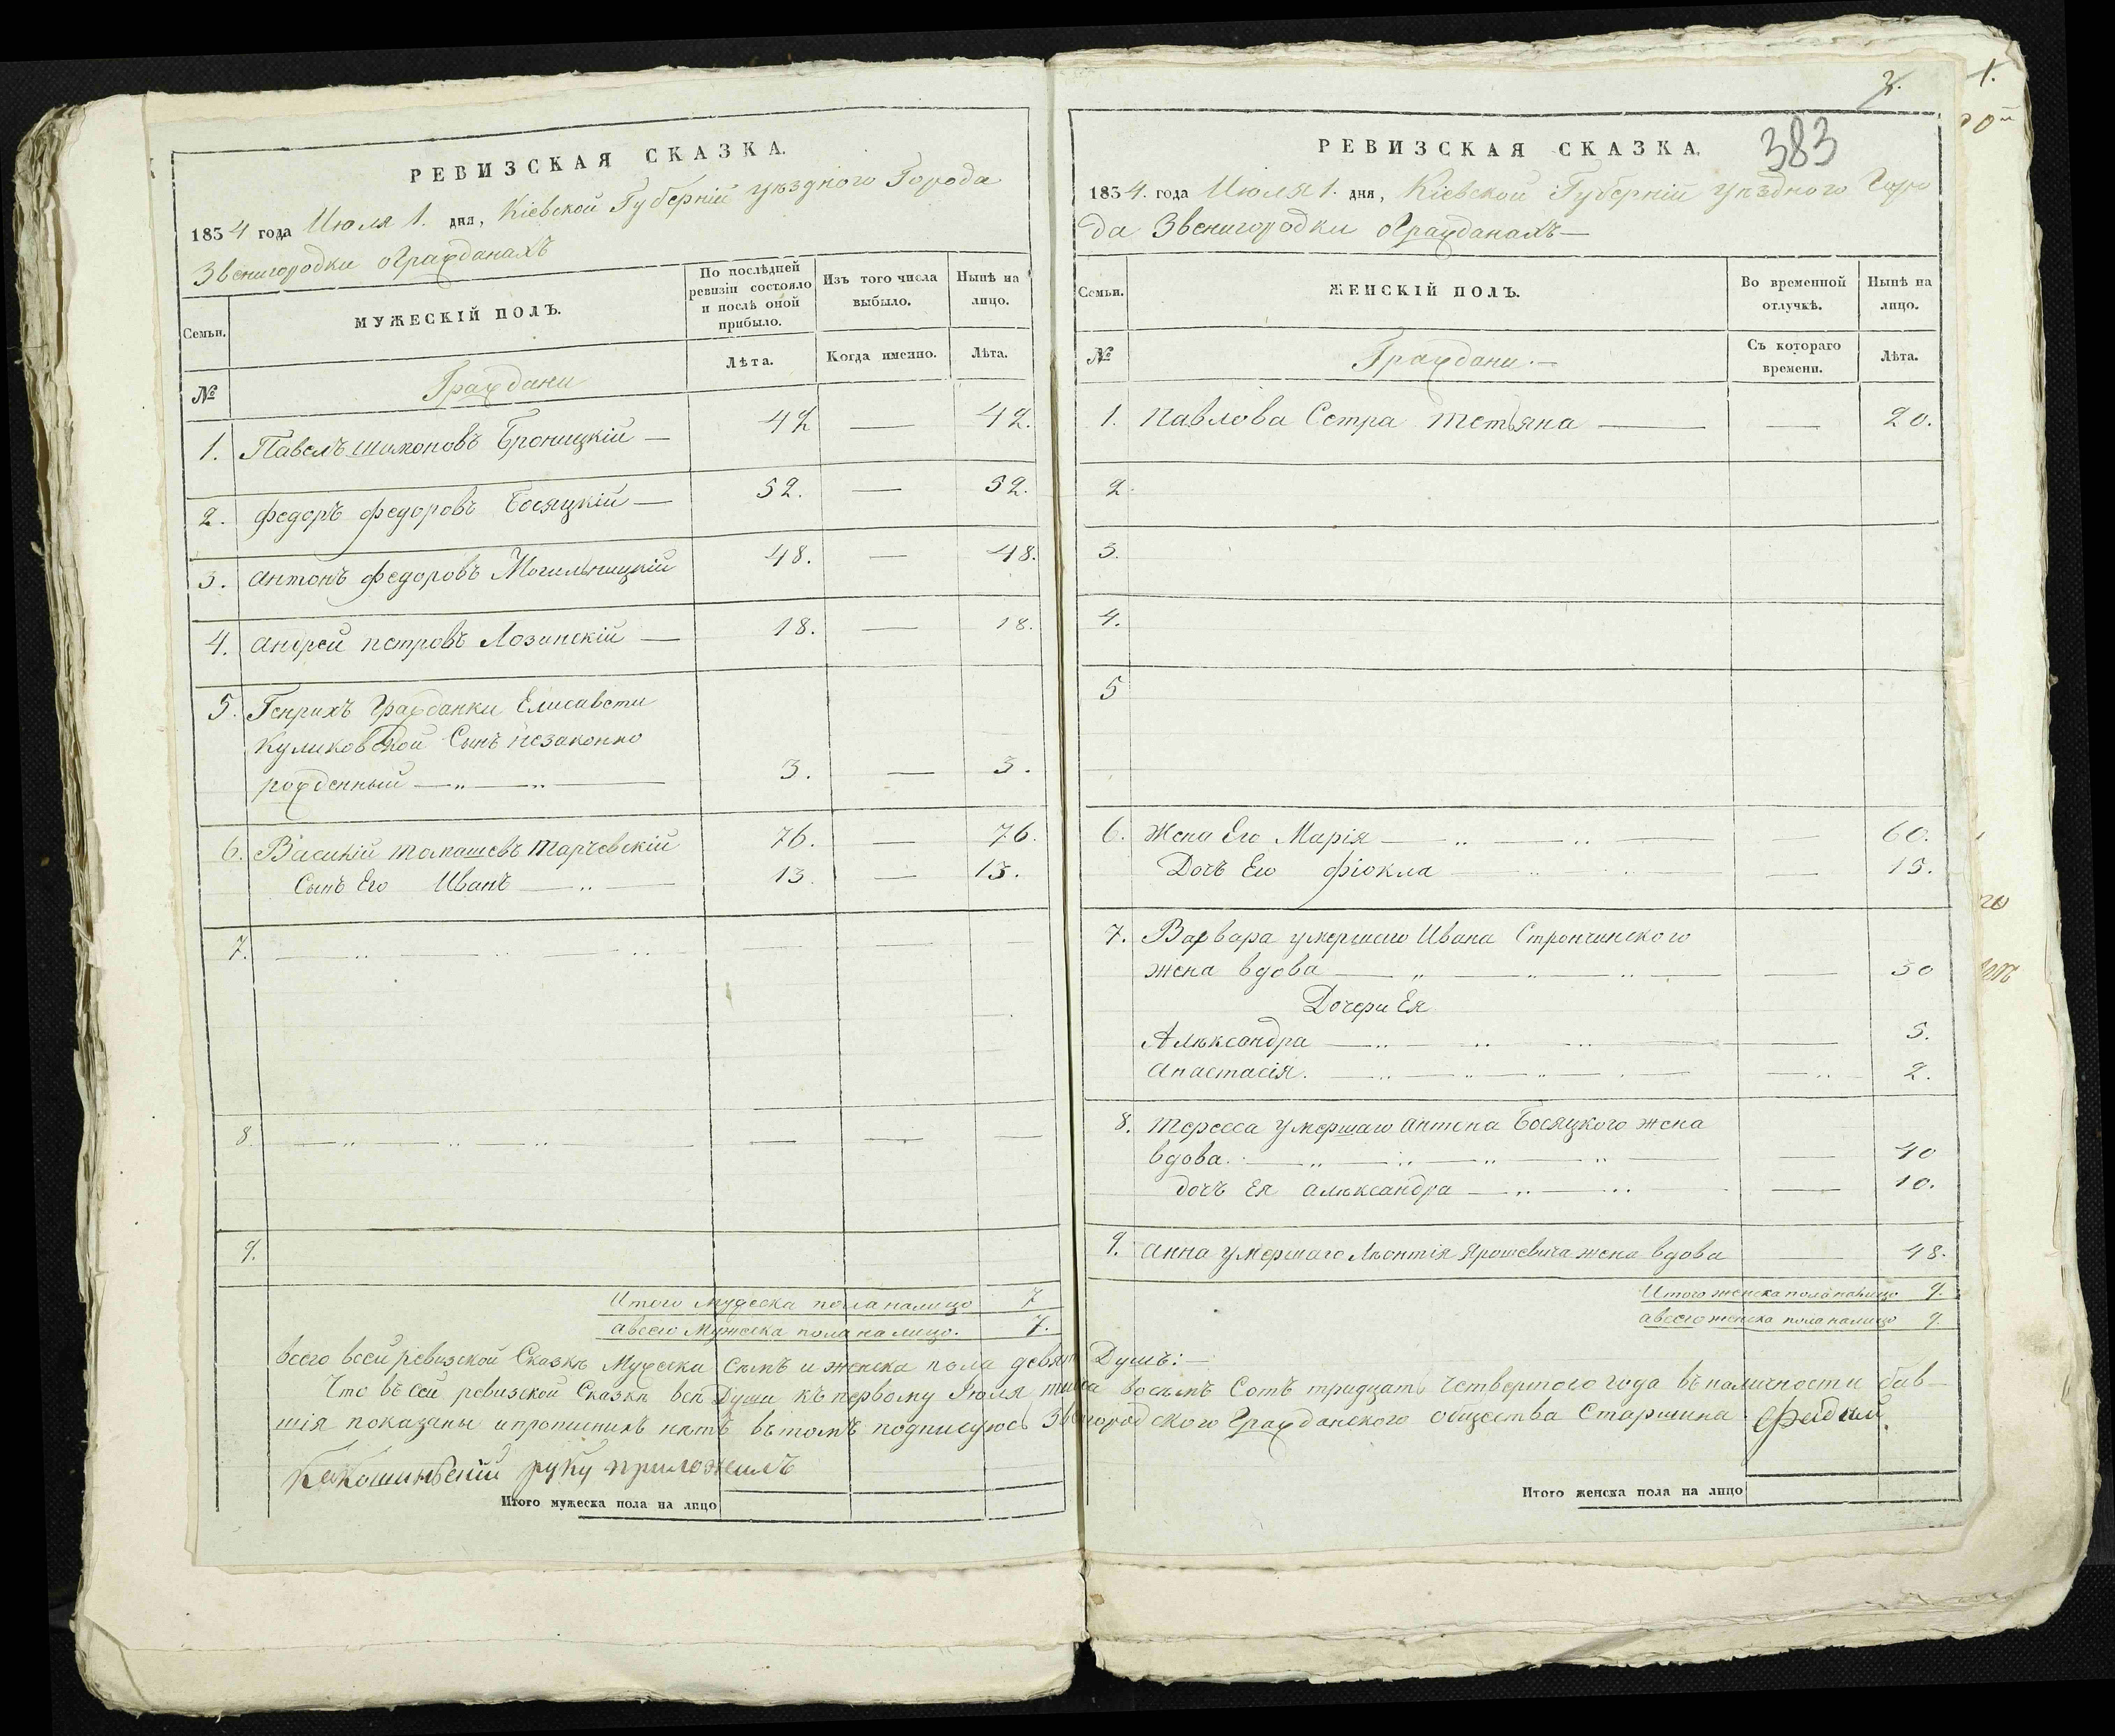 РЕВИЗСКАЯ СКАЗКА.
1834 года Июля 1. дня, Кіевской Губерніи уѣзднаго Города
Звенигородки о Гражданахъ
Семьи.
МУЖЕСКІЙ ПОЛЪ.
По послѣдней ревизіи состояло и послѣ оной прибыло.
Изъ того числа выбыло.
Нынѣ на лицо.
№
Граждани
Лѣта.
Когда именно.
Лѣта.
1. Павелъ Шимоновъ Броницкій — 42 — 42.
2. Федоръ Федоровъ Босяцкій — 52. — 52.
3. Антонъ Федоровъ Могильницкій 48. — 48.
4. Андрей Петровъ Лозинскій — 18. — 18.
5. Генрихъ Гражданки Елисавети
Куликовской Сынъ незаконно
рожденный — „ — „ — 3. — 3.
6. Василій Томашевъ Тарчевскій 76. — 76.
Сынъ Его Иванъ — „ — 13. — 13.
7. — „ — „ — „ — — —
8. — „ — „ — „ — — — —
9.
Итого мужеска пола налицо 7
А всего мужеска пола на лицо. 7.
РЕВИЗСКАЯ СКАЗКА.
383
1834. года Июля 1. дня, Кіевской Губерніи уѣздного Горо
да Звенигородки о Гражданахъ —
Семьи.
ЖЕНСКІЙ ПОЛЪ.
Во временной отлучкѣ.
Нынѣ на лицо.
№
Граждани. —
Съ котораго времени.
Лѣта.
1. Павлова Сетра Тетьяна — — 20.
2.
3.
4.
5
6. Жена Его Марія — „ — „ — — 60.
Дочь Его Фіокла — — 15.
7. Варвара умершаго Ивана Стрончинского
жена вдова — „ — „ — „ — — 30
Дочери Ея
Алѣксандра — „ — „ — — 5.
Анастасія. — „ — „ — „ — — „ 2.
8. Тересса умершаго Антона Босяцкого жена
вдова. — „ — „ — „ — „ — — 40
дочь Ея Алѣксандра — „ — „ — 10.
9. Анна умершаго Лѣонтія Ярошевича жена вдова — 48.
Итого женска пола налицо 9.
А всего женска пола налицо 9.
Всего в сей ревизской Сказкѣ Мужеска семъ и женска пола девять Душъ: —
Что въ сей ревизской Сказкѣ всѣ Души къ первому Июля тисяча восемъ сотъ тридцать четвертого года въ наличности бив—
шія показаны и прописнихъ нѣтъ въ томъ подписуюсь Звенигородского Гражданского общества Старшина
руку приложилъ
Итого мужеска пола на лицо
Итого женска пола на лицо